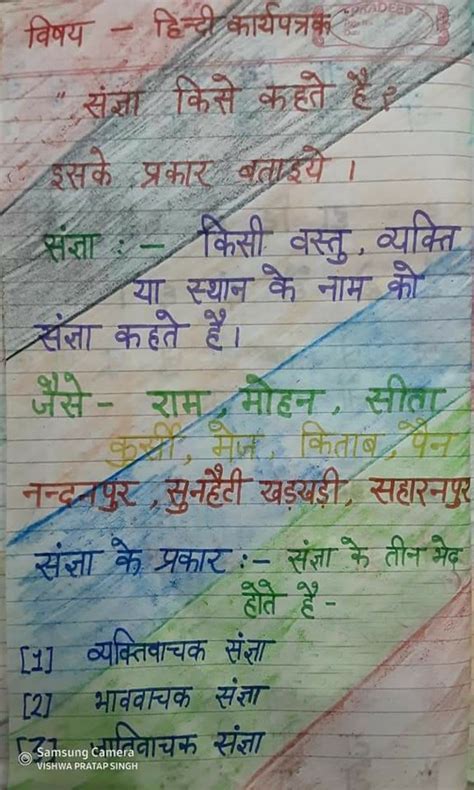 विषय - हिन्दी कार्यपत्रक
" संज्ञा किसे कहते है ?
इसके प्रकार बताइये ।
संज्ञा : - किसी वस्तु, व्यक्ति
या स्थान के नाम को
संज्ञा कहते है।
जैसे - राम, मोहन, सीता
कुर्सी, मेज, किताब, पैन
नन्दनपुर, सुनहैटी खड़खड़ी, सहारनपुर
संज्ञा के प्रकार :- संज्ञा के तीन भेद
होते है -
[1] व्यक्तिवाचक संज्ञा
[2] भाववाचक संज्ञा
[3] जातिवाचक संज्ञा
Samsung Camera
VISHWA PRATAP SINGH